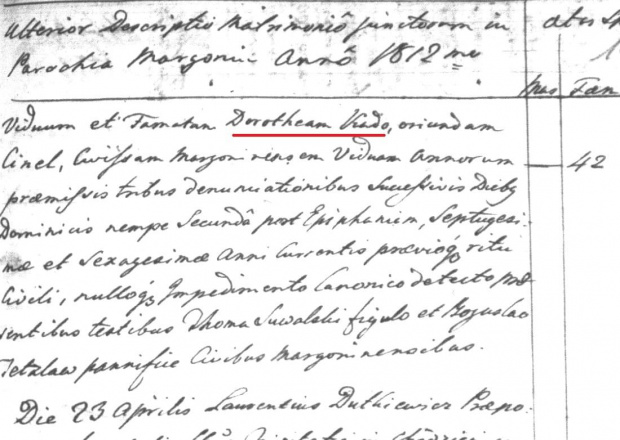 Ulterior Descriptio Matrimoniō junctorum in
Parochia Margonin Annō 1812 mo
Mas Foem
Viduum et Famatam Dorotheam Kiado, oriundam
Civissam Margoninensem Viduam Annorum — 42
præmissis tribus denunciationibus Successivis Dieb9
Dominicis nempe Secundâ post Epiphaniam, Septuagesi-
mæ et Sexagesimæ Anni Currentis præviog3 ritu
Civili, nullog3 Impedimento Canonico detecto præ
sentibus testibus Thoma Suwalski figulo et Boguslao
Tetzlaw pannifice Civibus Margoninensibus.
Die 23 Aprilis Laurentius Dutkiewicz Præpo-